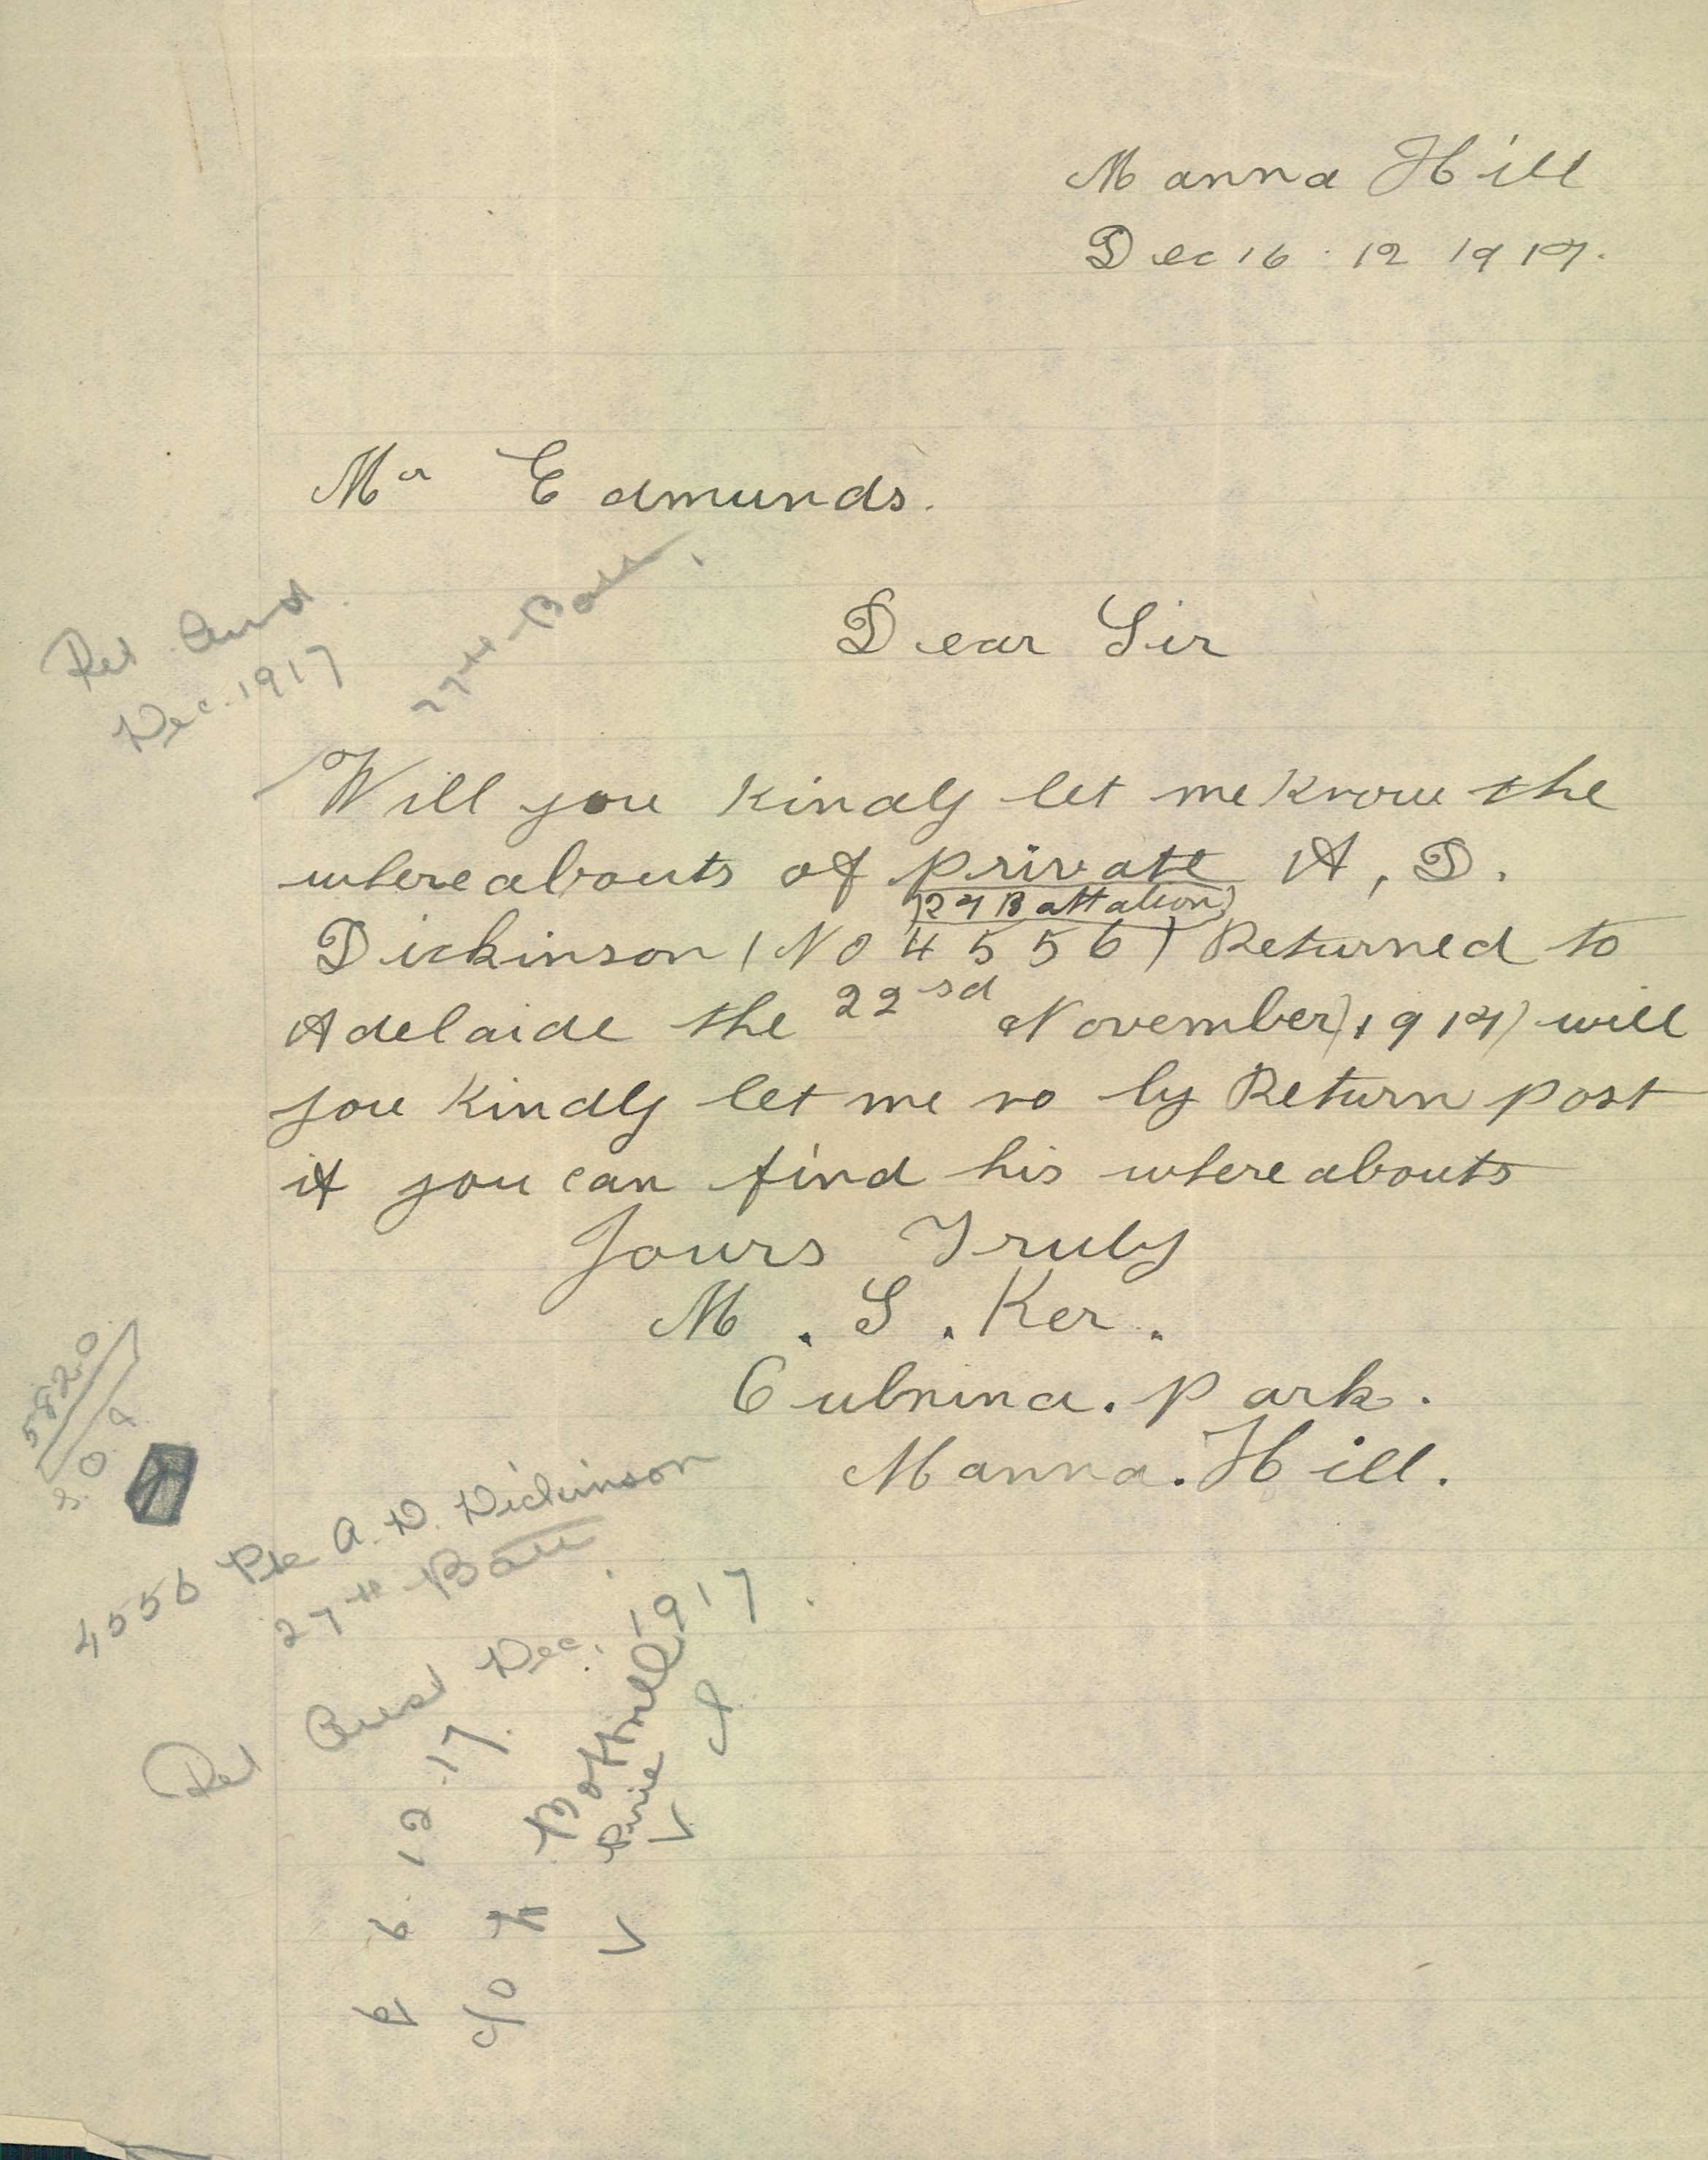 Manna Hill
Dec 16 . 12 1917.
Mr Edmunds.
Ret Aust
Dec. 1917
27th Batt.
Dear Sir
Will you kindly let me know the
whereabouts of private A, D.
(27 Battalion)
Dickinson (No 4556) Returned to
Adelaide the 22sd November) 1917) will
you kindly let me no by Return post
if you can find his whereabouts
Yours Truly
M. S. Ker.
Manna. Hill.
5820
4556 Pte A. D. Dickinson
27th Batt.
Ret Aust Dec. 1917.
6.12.17
c/o
Pirie